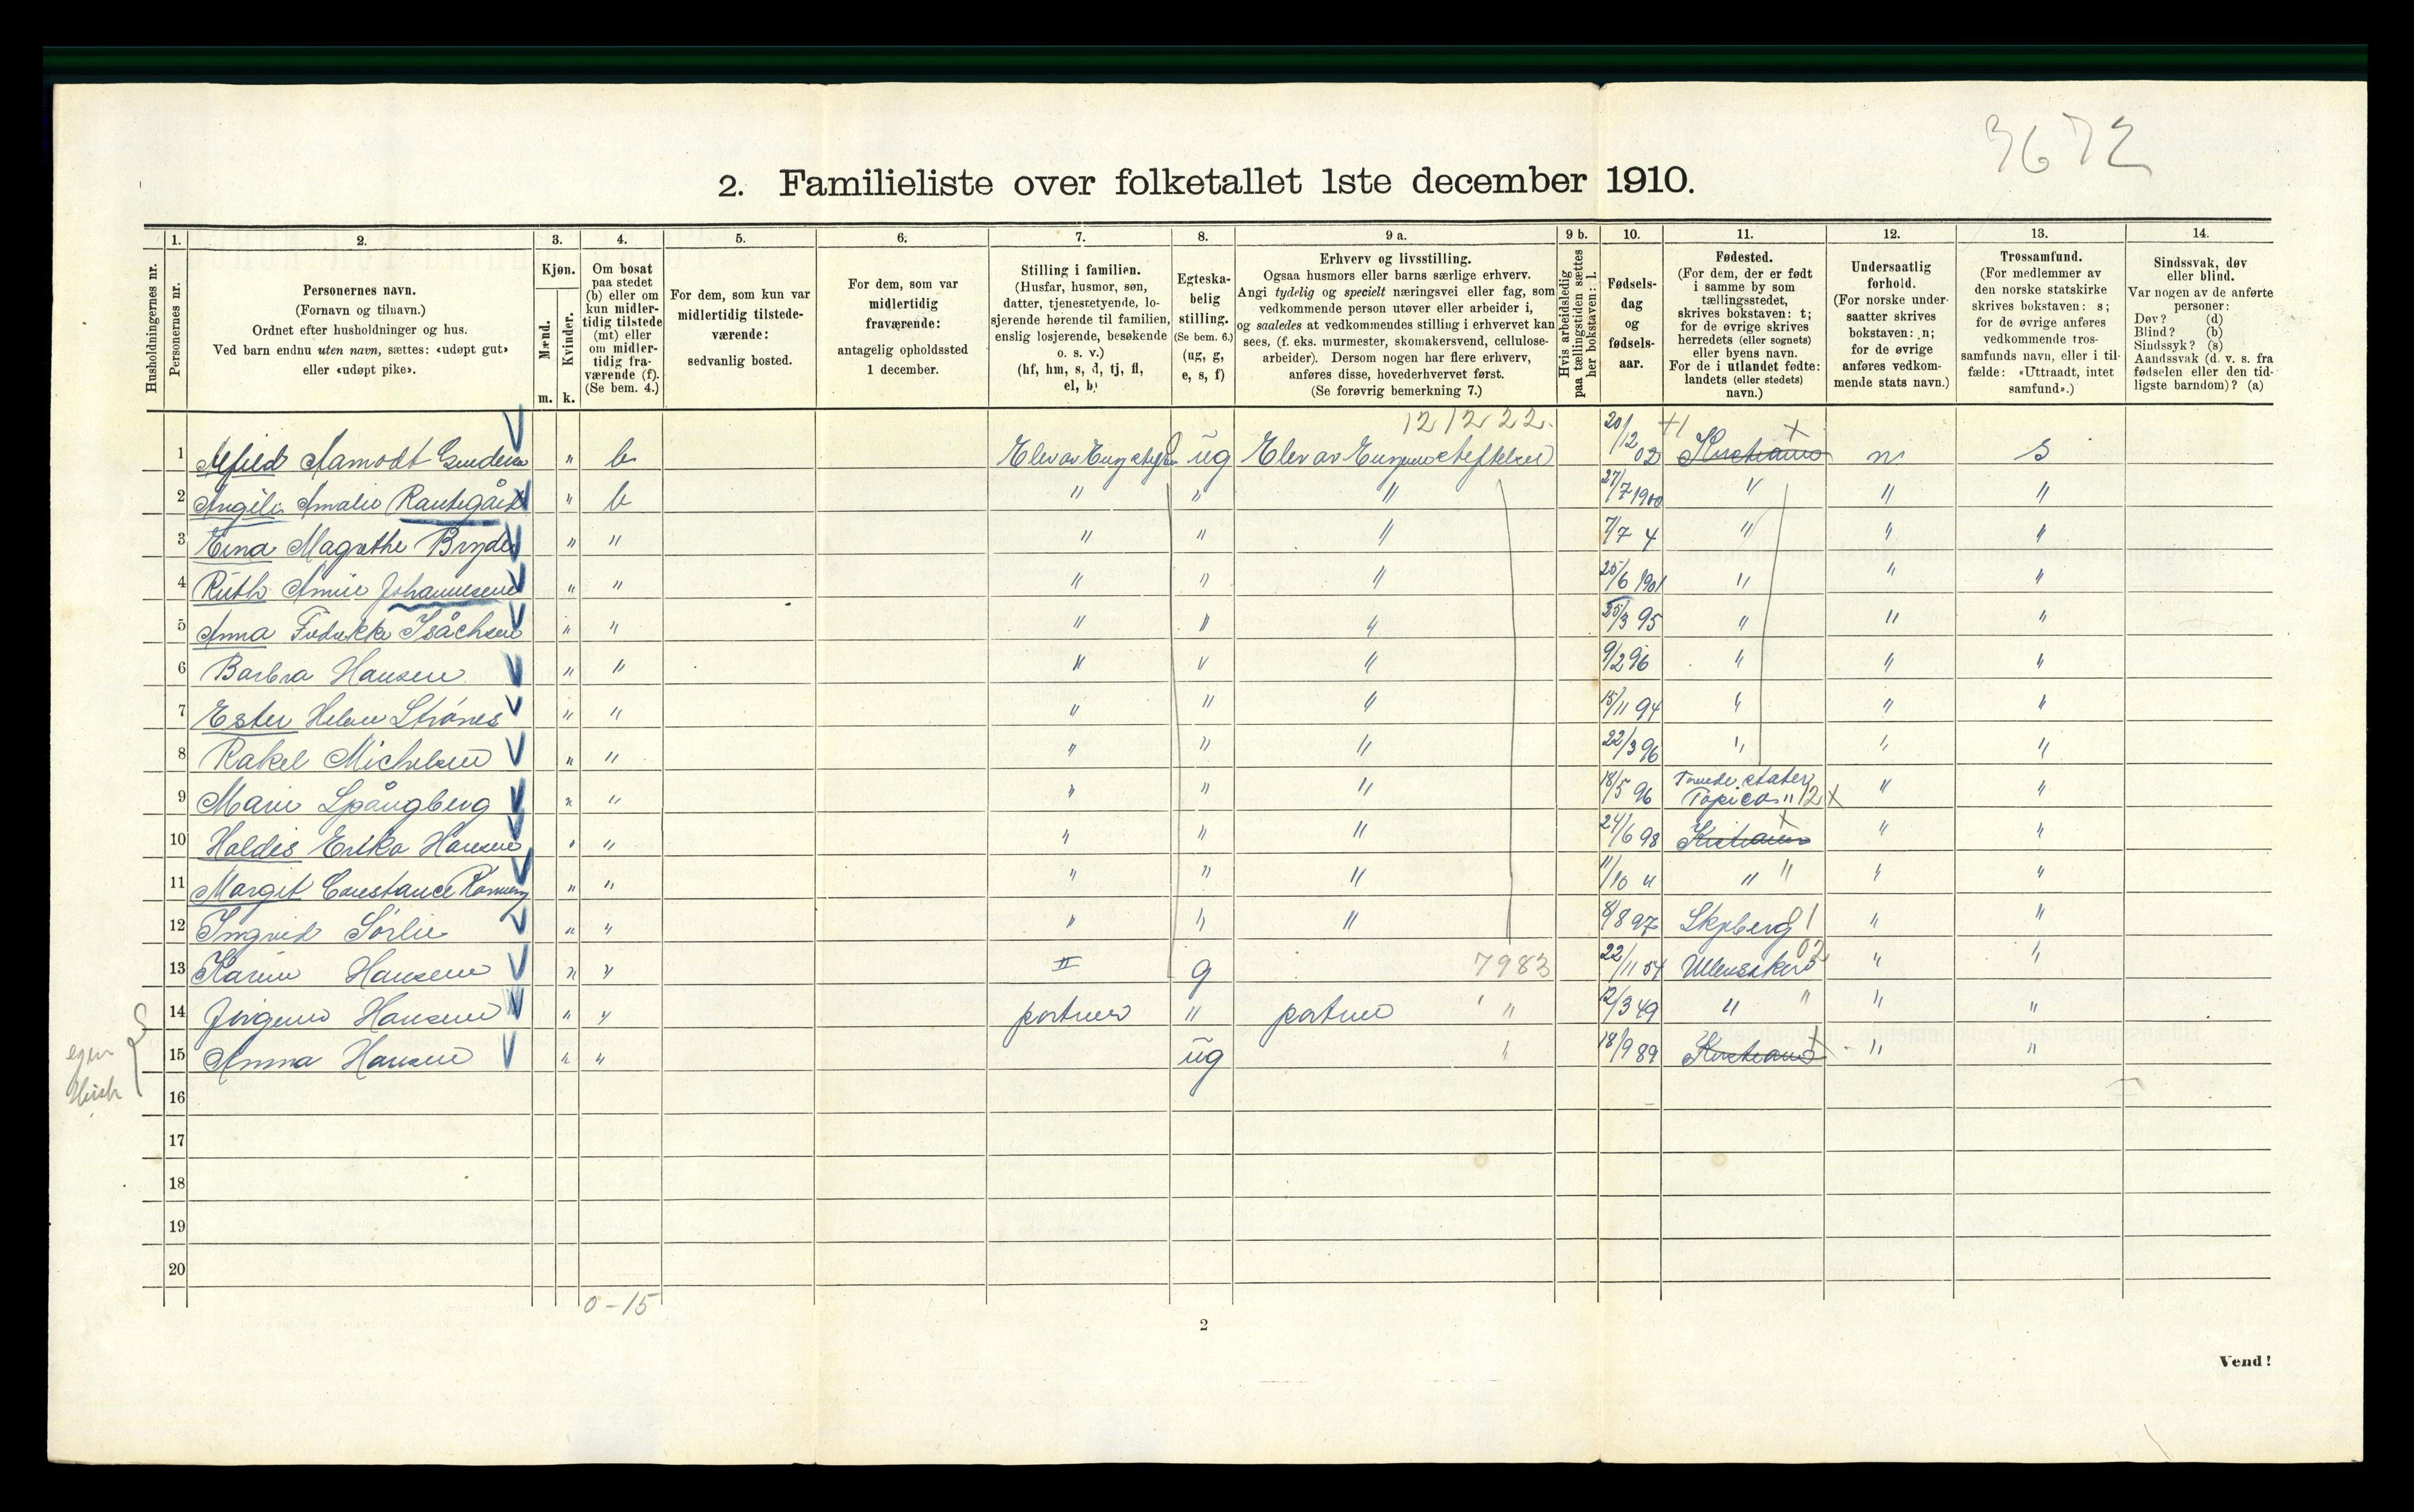 3672
2. Familieliste over folketallet 1ste december 1910.
1. 2. 3. 4. 5. 6. 7. 8. 9 a. 9 b. 10. 11. 12. 13. 14.
Husholdningernes nr.
Personernes nr.
Personernes navn.
(Fornavn og tilnavn.)
Ordnet efter husholdninger og hus.
Ved barn endnu uten navn, sættes: «udøpt gut»
eller «udøpt pike».
Kjøn.
Mænd.
Kvinder.
m. k.
Om bosat
paa stedet
(b) eller om
kun midler-
tidig tilstede
(mt) eller
om midler-
tidig fra-
værende (f).
(Se bem. 4.)
For dem, som kun var
midlertidig tilstede-
værende:
sedvanlig bosted.
For dem, som var
midlertidig
fraværende:
antagelig opholdssted
1 december.
Stilling i familien.
(Husfar, husmor, søn,
datter, tjenestetyende, lo-
sjerende hørende til familien,
enslig losjerende, besøkende
o. s. v.)
(hf, hm, s, d, tj, fl,
el, b)
Egteska-
belig
stilling.
(Se bem. 6.)
(ug, g,
e, s, f)
Erhverv og livsstilling.
Ogsaa husmors eller barns særlige erhverv.
Angi tydelig og specielt næringsvei eller fag, som
vedkommende person utøver eller arbeider i,
og saaledes at vedkommendes stilling i erhvervet kan
sees, (f. eks. murmester, skomakersvend, cellulose-
arbeider). Dersom nogen har flere erhverv,
anføres disse, hovederhvervet først.
(Se forøvrig bemerkning 7.)
Hvis arbeidsledig
paa tællingstiden sættes
her bokstaven: l.
Fødsels-
dag
og
fødsels-
aar.
Fødested.
(For dem, der er født
i samme by som
tællingsstedet,
skrives bokstaven: t;
for de øvrige skrives
herredets (eller sognets)
eller byens navn.
For de i utlandet fødte:
landets (eller stedets)
navn.)
Undersaatlig
forhold.
(For norske under-
saatter skrives
bokstaven: n;
for de øvrige
anføres vedkom-
mende stats navn.)
Trossamfund.
(For medlemmer av
den norske statskirke
skrives bokstaven: s;
for de øvrige anføres
vedkommende tros-
samfunds navn, eller i til-
fælde: «Uttraadt, intet
samfund».)
Sindssvak, døv
eller blind.
Var nogen av de anførte
personer:
Døv? (d)
Blind? (b)
Sindssyk? (s)
Aandssvak (d. v. s. fra
fødselen eller den tid-
ligste barndom)? (a)
121222.
1 Aamodt " b Elev av ug Elev av 20/12 02 n s
2 Amalie " b " " " 27/7 1900 " " "
3 Magrethe " " " " " 7/7 4 " " "
4 Ruth Johannesen " " " " " 25/6 1901 " " "
5 Anna Isåchsen " " " " " 25/3 95 " " "
6 Barbra Hansen " " " " " 9/2 96 " " "
7 Ester Helene " " " " " 15/11 94 " " "
8 Rakel Michelsen " " " " " 22/3 96 " " "
9 Marie Spångberg " " " " " 18/5 96 " "
10 Haldis Erika Hansen " " " " " 24/6 98 " "
11 Margit Constance " " " " " 11/10 " " " "
12 Ingrid Sørlie " " " " " 8/8 97 " "
13 Karen Hansen " " " g 7983 22/11 54 Ullensaker 02 " "
14 Jørgine Hansen " " portner " portner " 12/3 49 " " " "
15 Anna Hansen " " ug " 18/9 89 " "
egen
16
17
18
19
20
0-15
2
Vend!